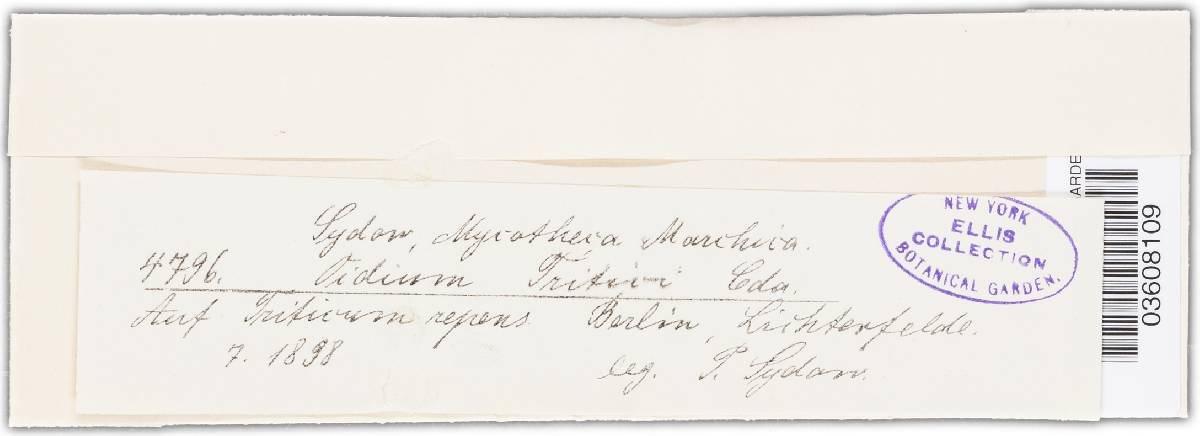 Sydow, Mycotheca Marchica.
4796. Oidium Tritici Cda.
Auf Triticum repens Berlin, Lichterfelde.
7. 1898
leg. P. Sydow.
NEW YORK
ELLIS
COLLECTION
BOTANICAL GARDEN.
ARDE
03608109